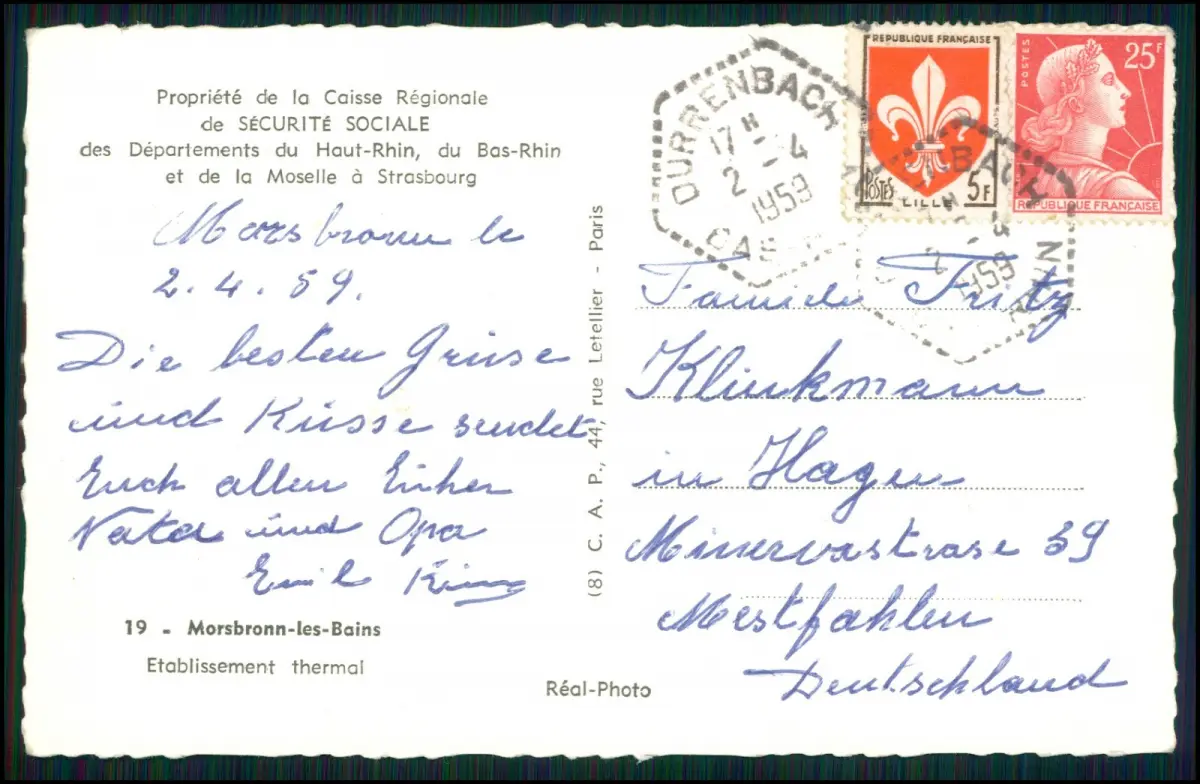 Propriété de la Caisse Régionale
de SÉCURITÉ SOCIALE
des Départements du Haut-Rhin, du Bas-Rhin
et de la Moselle à Strasbourg
Morsbronn le
2.4.59.
Die besten Grüsse
und Küsse sendet
Euch allen Euher
Vater und Opa
Emil
19 - Morsbronn-les-Bains
Etablissement thermal
Réal-Photo
(8) C. A. P., 44, rue Letellier - Paris
DURRENBACH
17 H
2 - 4
1959
BAS
REPUBLIQUE FRANÇAISE
POSTES
LILLE
5F
POSTES
25F
REPUBLIQUE FRANÇAISE
BACH
1959
Familie Fritz
Klinkmann
in Hagen
Minervastrase 39
Westfahlen
Deutschland